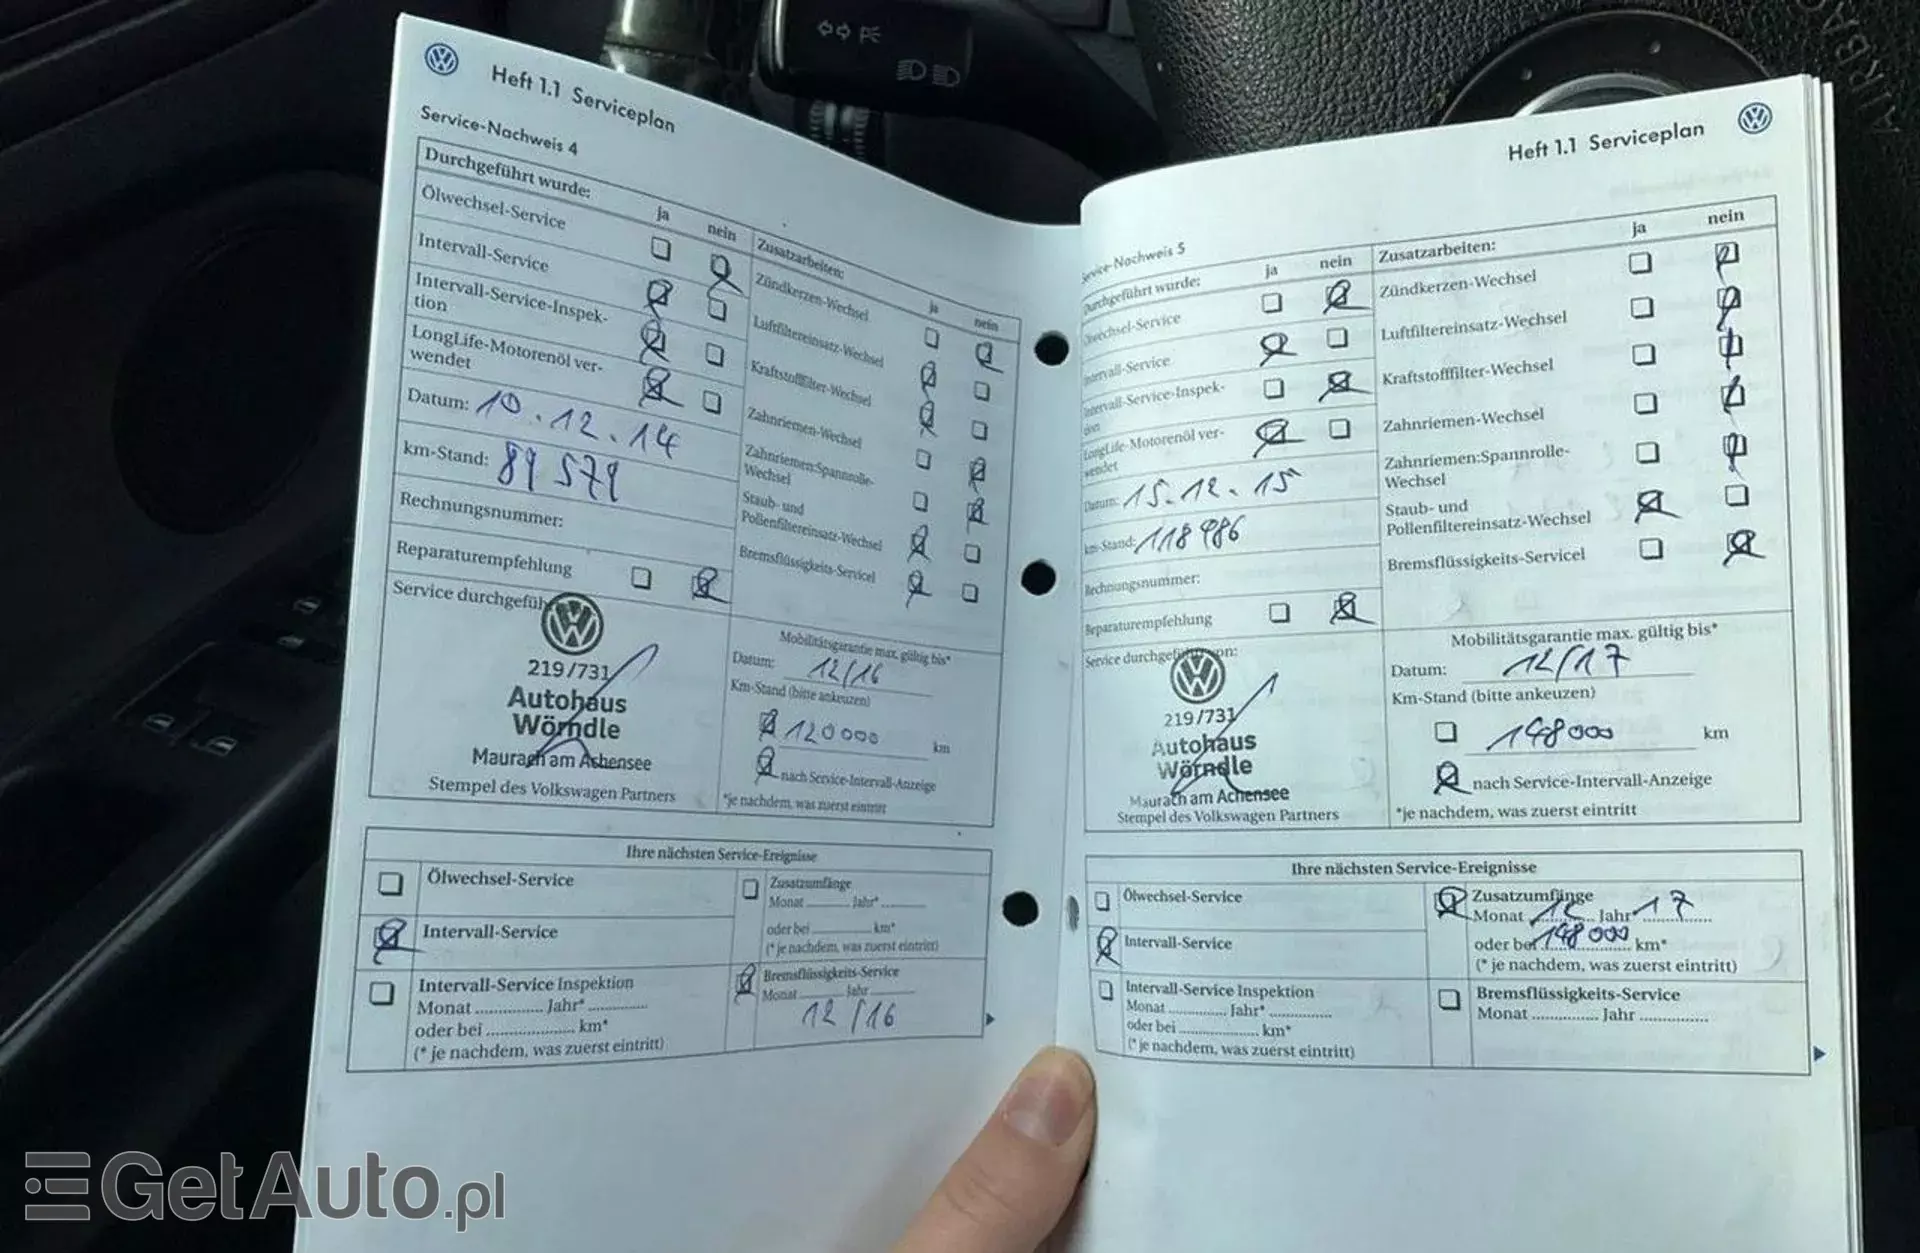 Heft 1.1 Serviceplan
Service-Nachweis 4
Durchgeführt wurde:
ja
nein
Ölwechsel-Service
Intervall-Service
Intervall-Service-Inspek-
tion
LongLife-Motorenöl ver-
wendet
Datum: 10.12.14
km-Stand: 89 579
Rechnungsnummer:
Reparaturempfehlung
Service durchgeführt
219/731
Autohaus
Wörndle
Maurach am Achensee
Stempel des Volkswagen Partners
Zusatzarbeiten:
ja
nein
Zündkerzen-Wechsel
Luftfiltereinsatz-Wechsel
Kraftstofffilter-Wechsel
Zahnriemen-Wechsel
Zahnriemen:Spannrolle-
Wechsel
Staub- und
Pollenfiltereinsatz-Wechsel
Bremsflüssigkeits-Servicel
Mobilitätsgarantie max. gültig bis*
Datum: 12/16
Km-Stand (bitte ankeuzen)
120000 km
nach Service-Intervall-Anzeige
*je nachdem, was zuerst eintritt
Ihre nächsten Service-Ereignisse
Ölwechsel-Service
Intervall-Service
Intervall-Service Inspektion
Monat ............... Jahr* ...............
oder bei .................... km*
(* je nachdem, was zuerst eintritt)
Zusatzumfänge
Monat ........... Jahr* ...........
oder bei ............... km*
(* je nachdem, was zuerst eintritt)
Bremsflüssigkeits-Service
Monat ........... Jahr ...........
12/16
Heft 1.1 Serviceplan
Service-Nachweis 5
Durchgeführt wurde:
ja
nein
Ölwechsel-Service
Intervall-Service
Intervall-Service-Inspek-
tion
LongLife-Motorenöl ver-
wendet
Datum: 15.12.15
km-Stand: 118986
Rechnungsnummer:
Reparaturempfehlung
Service durchgeführt von:
219/731
Autohaus
Wörndle
Maurach am Achensee
Stempel des Volkswagen Partners
Zusatzarbeiten:
ja
nein
Zündkerzen-Wechsel
Luftfiltereinsatz-Wechsel
Kraftstofffilter-Wechsel
Zahnriemen-Wechsel
Zahnriemen:Spannrolle-
Wechsel
Staub- und
Pollenfiltereinsatz-Wechsel
Bremsflüssigkeits-Servicel
Mobilitätsgarantie max. gültig bis*
Datum: 12/17
Km-Stand (bitte ankeuzen)
148000 km
nach Service-Intervall-Anzeige
*je nachdem, was zuerst eintritt
Ihre nächsten Service-Ereignisse
Ölwechsel-Service
Intervall-Service
Intervall-Service Inspektion
Monat ............. Jahr* ...............
oder bei .................... km*
(* je nachdem, was zuerst eintritt)
Zusatzumfänge
Monat 12 Jahr* 17
oder bei 148000 km*
(* je nachdem, was zuerst eintritt)
Bremsflüssigkeits-Service
Monat .............. Jahr ...............
GetAuto.pl